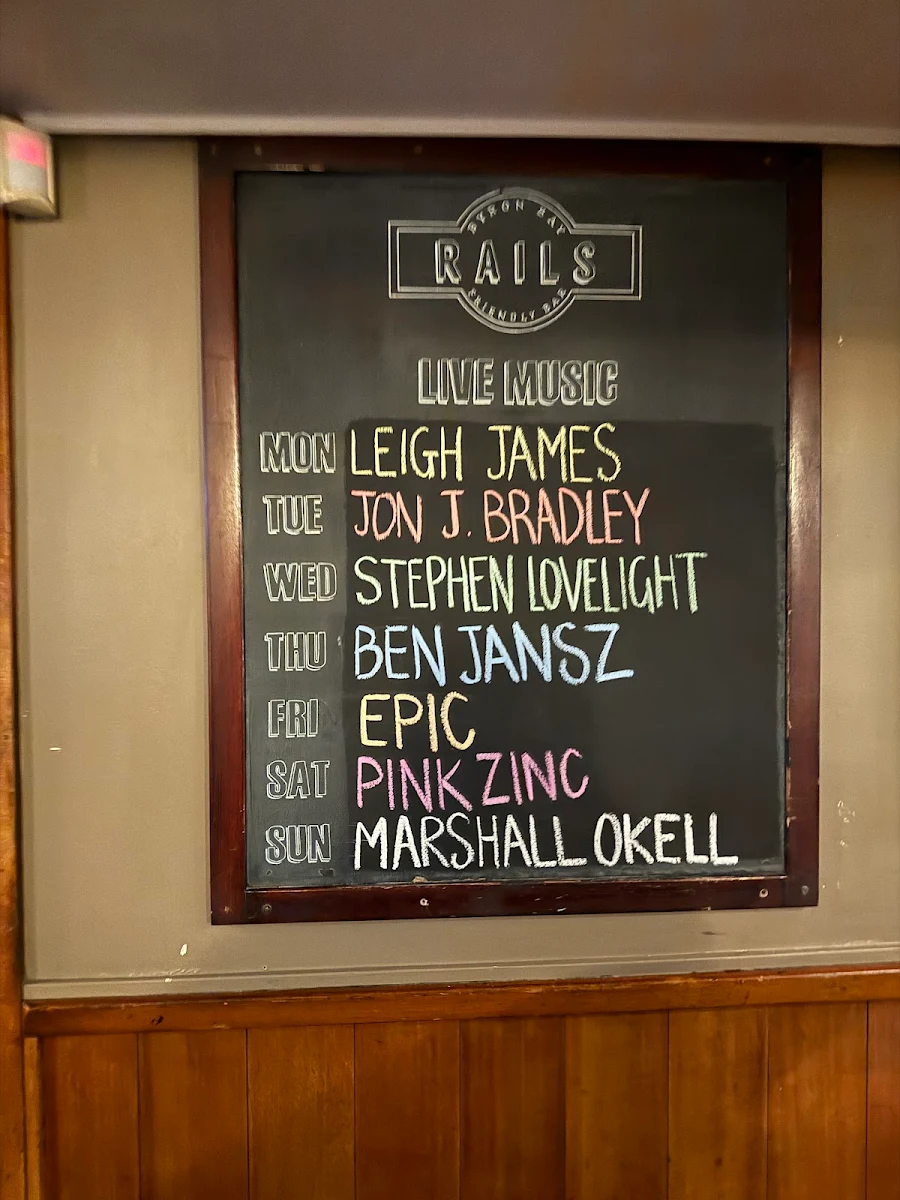 BYRON BAY
RAILS
FRIENDLY BAR
LIVE MUSIC
MON LEIGH JAMES
TUE JON J. BRADLEY
WED STEPHEN LOVELIGHT
THU BEN JANSZ
FRI EPIC
SAT PINK ZINC
SUN MARSHALL OKELL